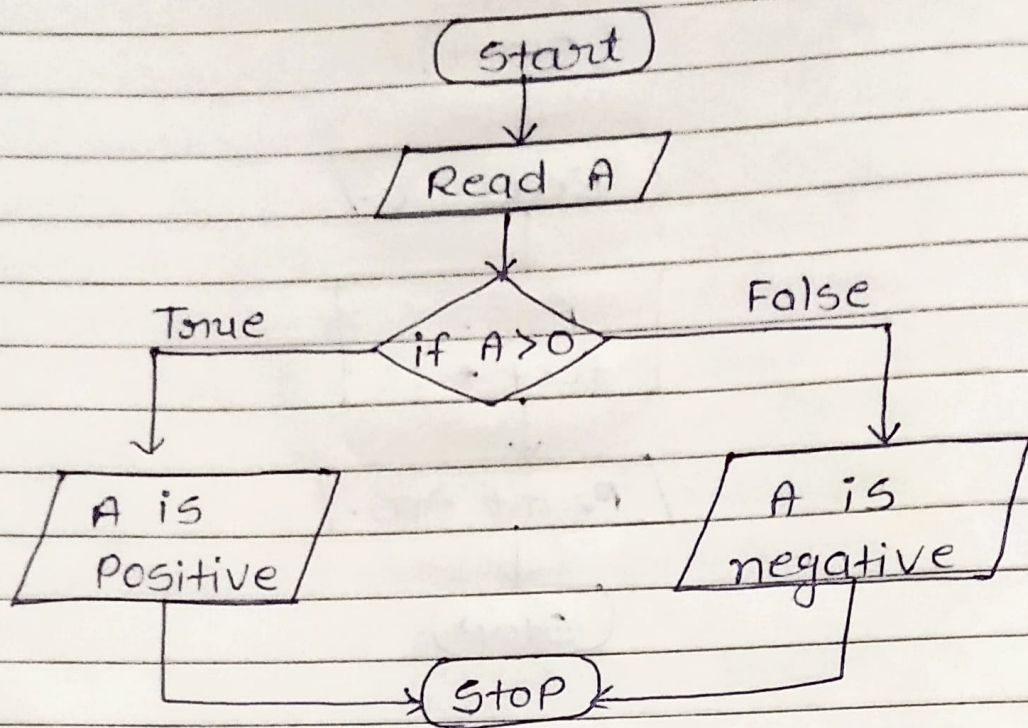 Start
Read A
True
False
if A>0
A is
Positive
A is
negative
Stop